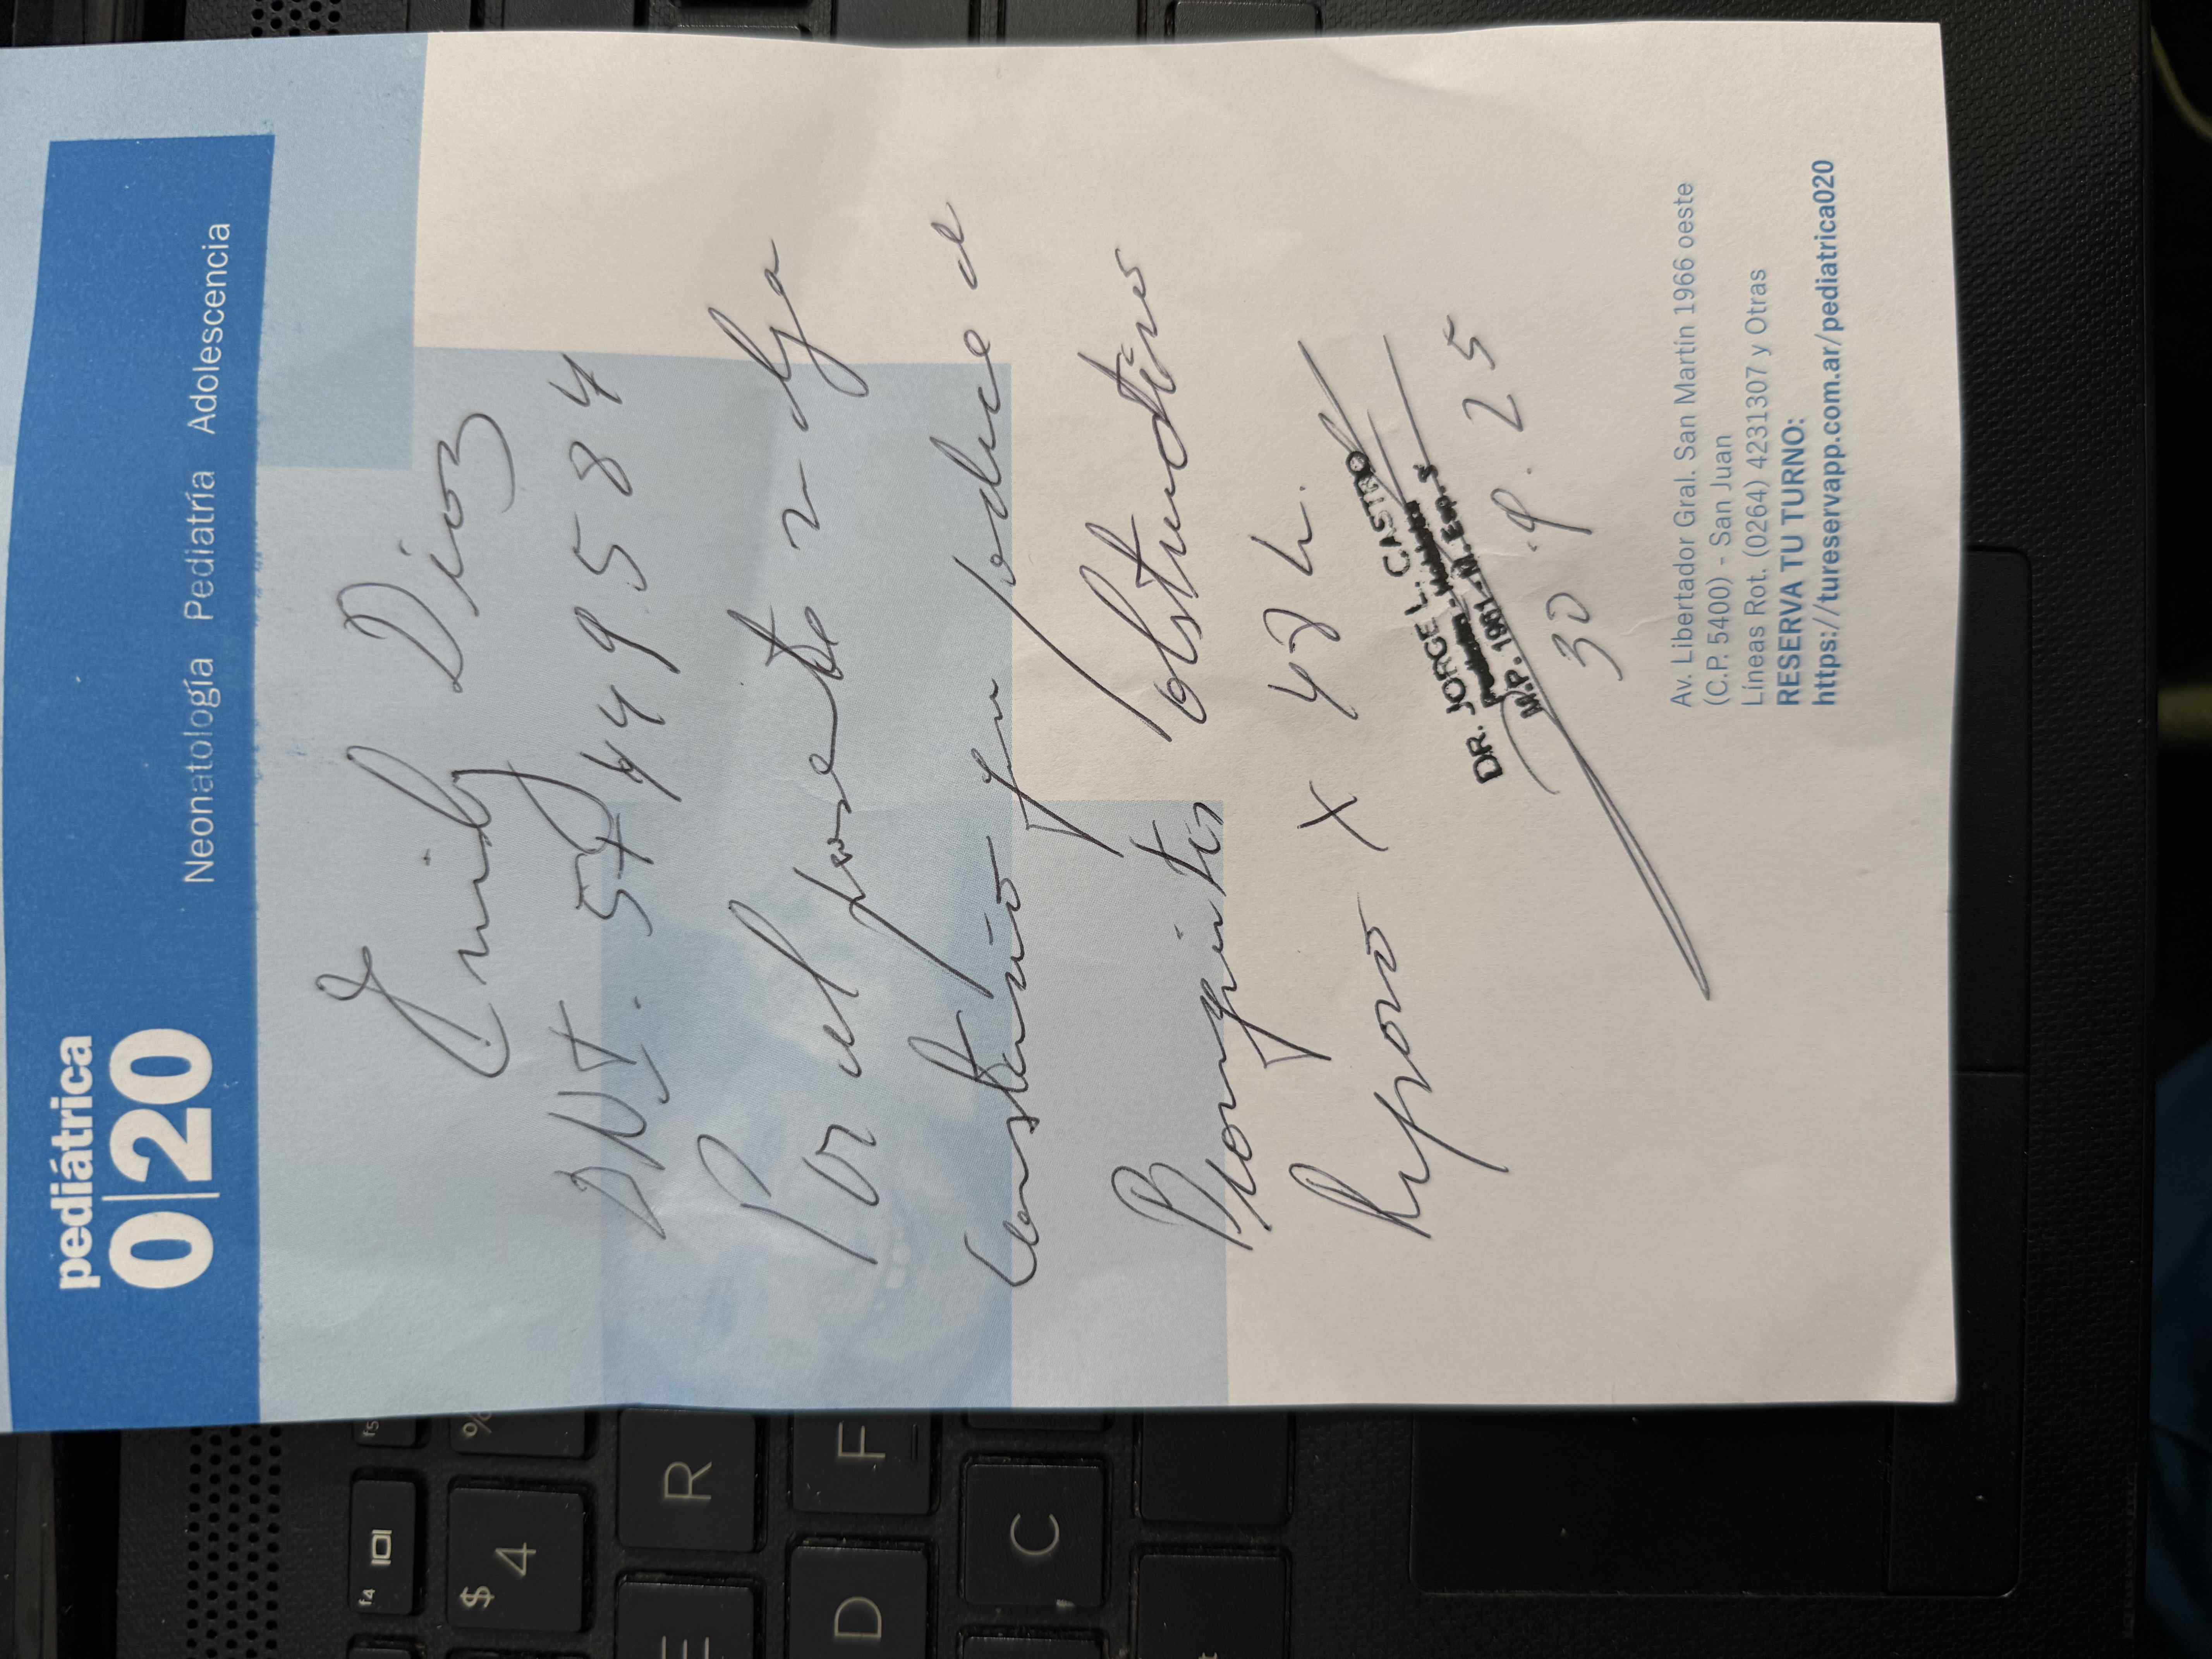 pediátrica
0|20
Neonatología Pediatría Adolescencia
Emily Diaz
DNI. 54499584
Por el presente se deja
constancia que padece de
Bronquitis obstructiva
Reposo x 48 h.
DR. JORGE L. CASTRO
M.P. 1981 - M. Esp.
30.9.25
Av. Libertador Gral. San Martín 1966 oeste
(C.P. 5400) - San Juan
Líneas Rot. (0264) 4231307 y Otras
RESERVA TU TURNO:
https://tureservapp.com.ar/pediatrica020
f4
f5
$
4
%
R
F
D
C
E